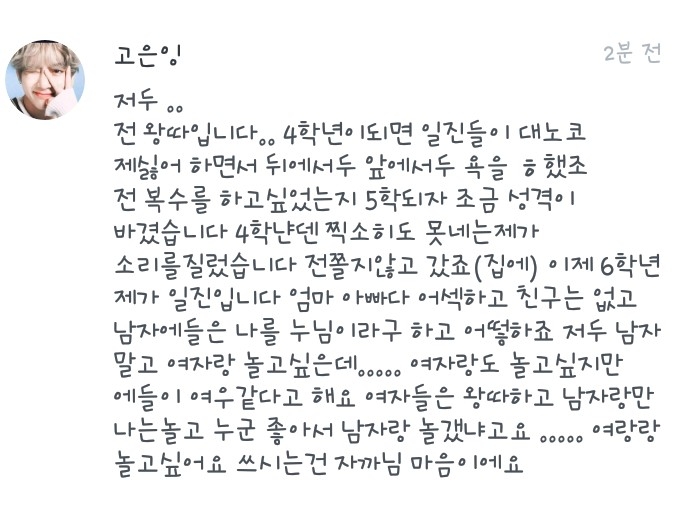 고은잉
2분 전
저두 ..
전 왕따입니다.. 4학년이되면 일진들이 대노코
제싫어 하면서 뒤에서두 앞에서두 욕을 ㅎ했조
전 복수를 하고싶었는지 5학되자 조금 성격이
바겼습니다 4학냔덴 찍소히도 못네는제가
소리를질렀습니다 전쫄지않고 갔죠(집에) 이제 6학년
제가 일진입니다 엄마 아빠다 어섹하고 친구는 없고
남자에들은 나를 누님이라구 하고 어떻하죠 저두 남자
말고 여자랑 놀고싶은데..... 여자랑도 놀고싶지만
에들이 여우같다고 해요 여자들은 왕따하고 남자랑만
나는놀고 누군 좋아서 남자랑 놀갰냐고요 ..... 여랑랑
놀고싶어요 쓰시는건 자까님 마음이에요